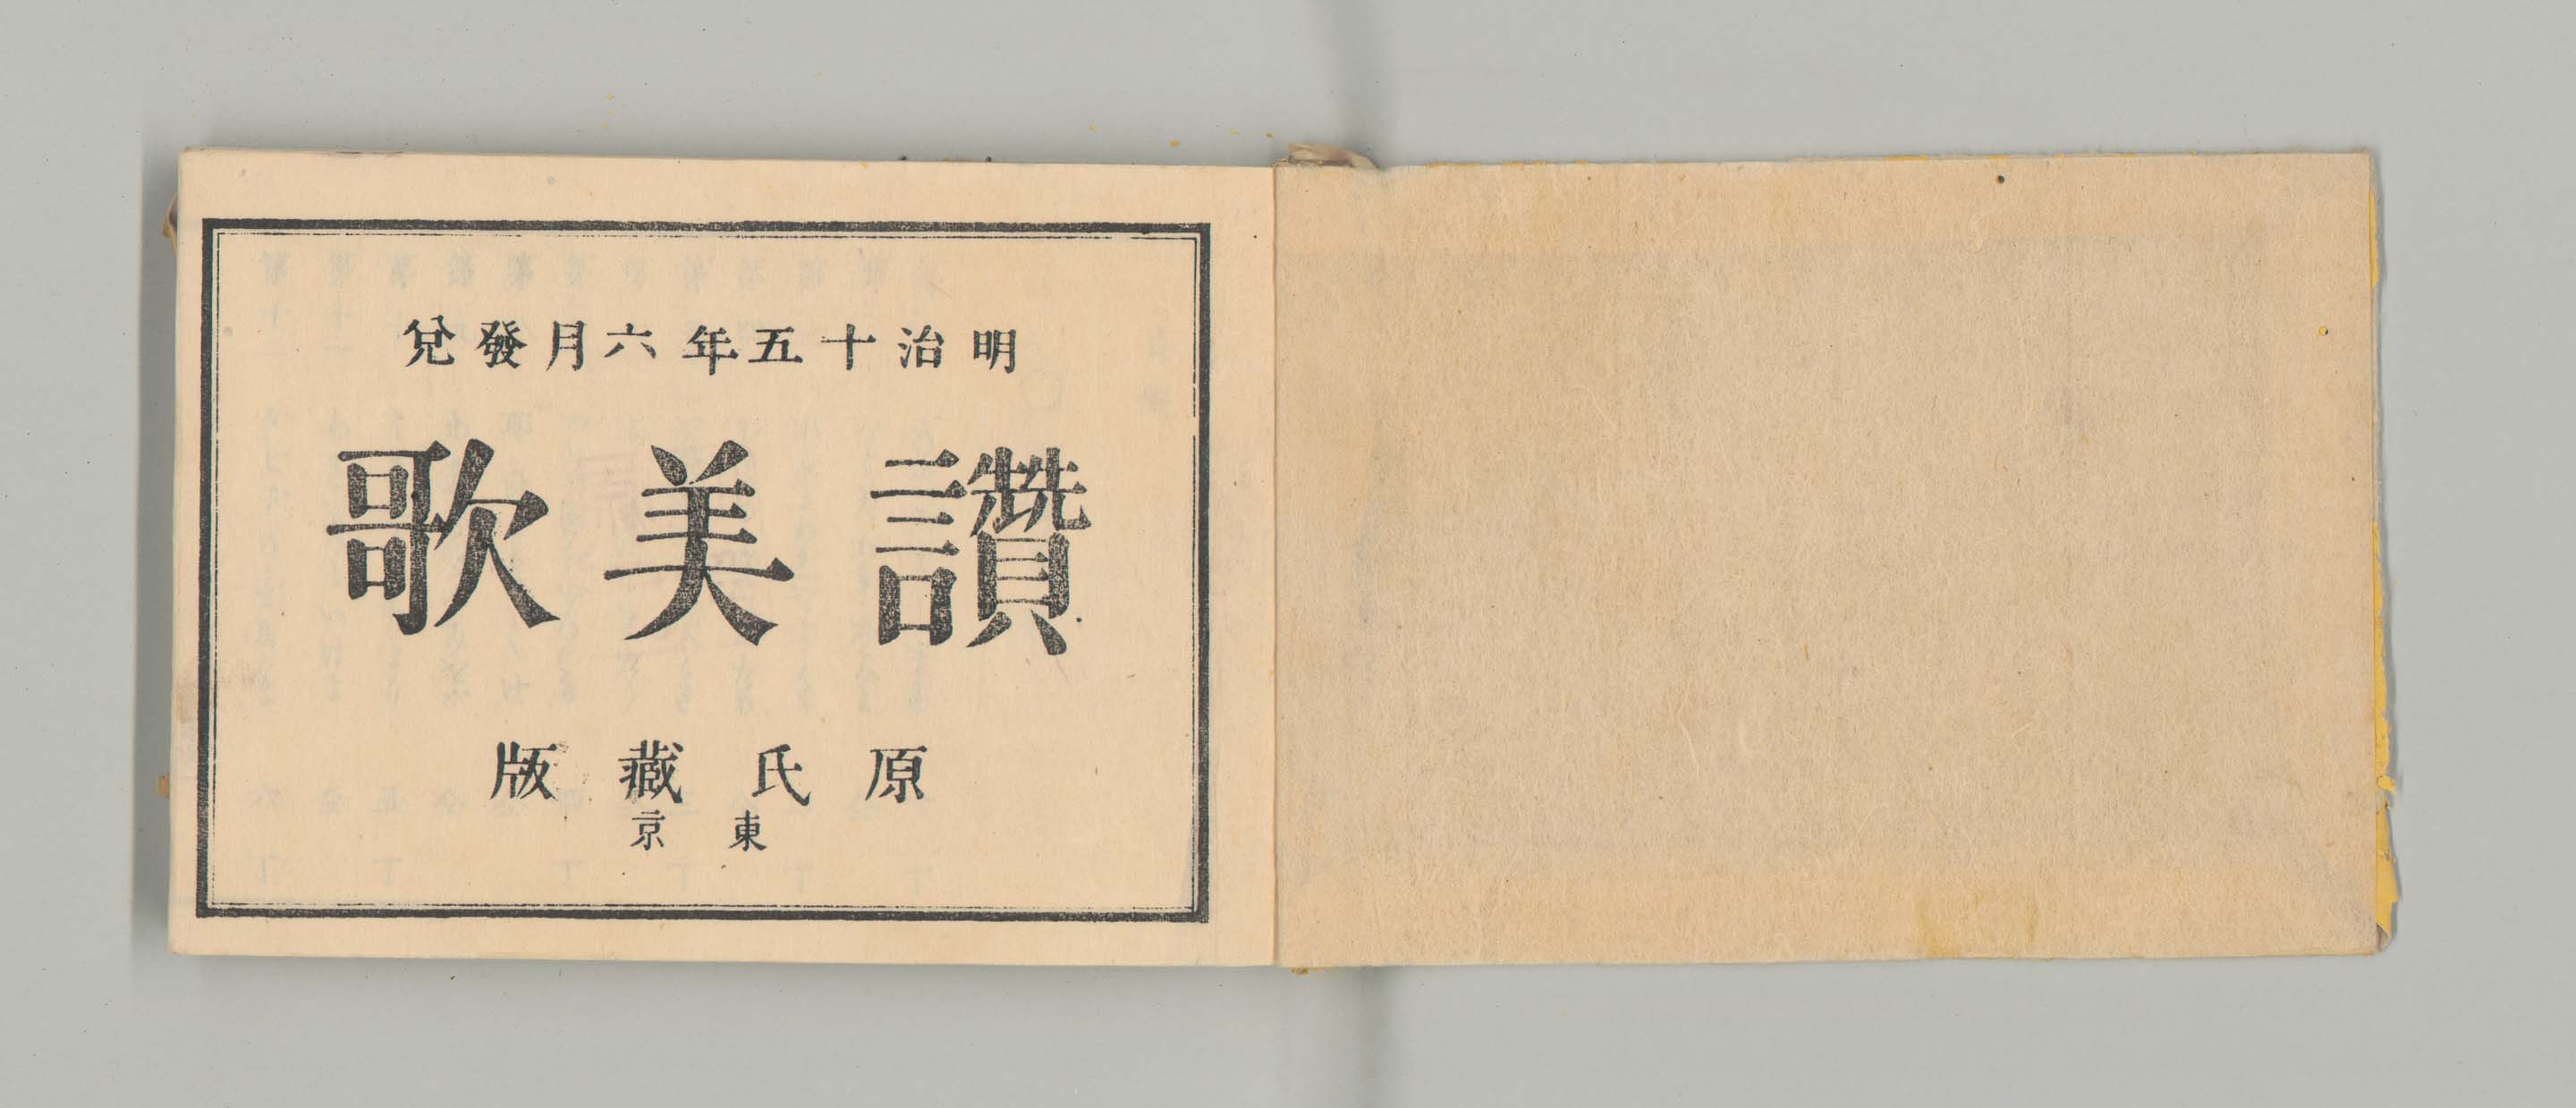 明治十五年六月發兌
讃美歌
原氏藏版
東京